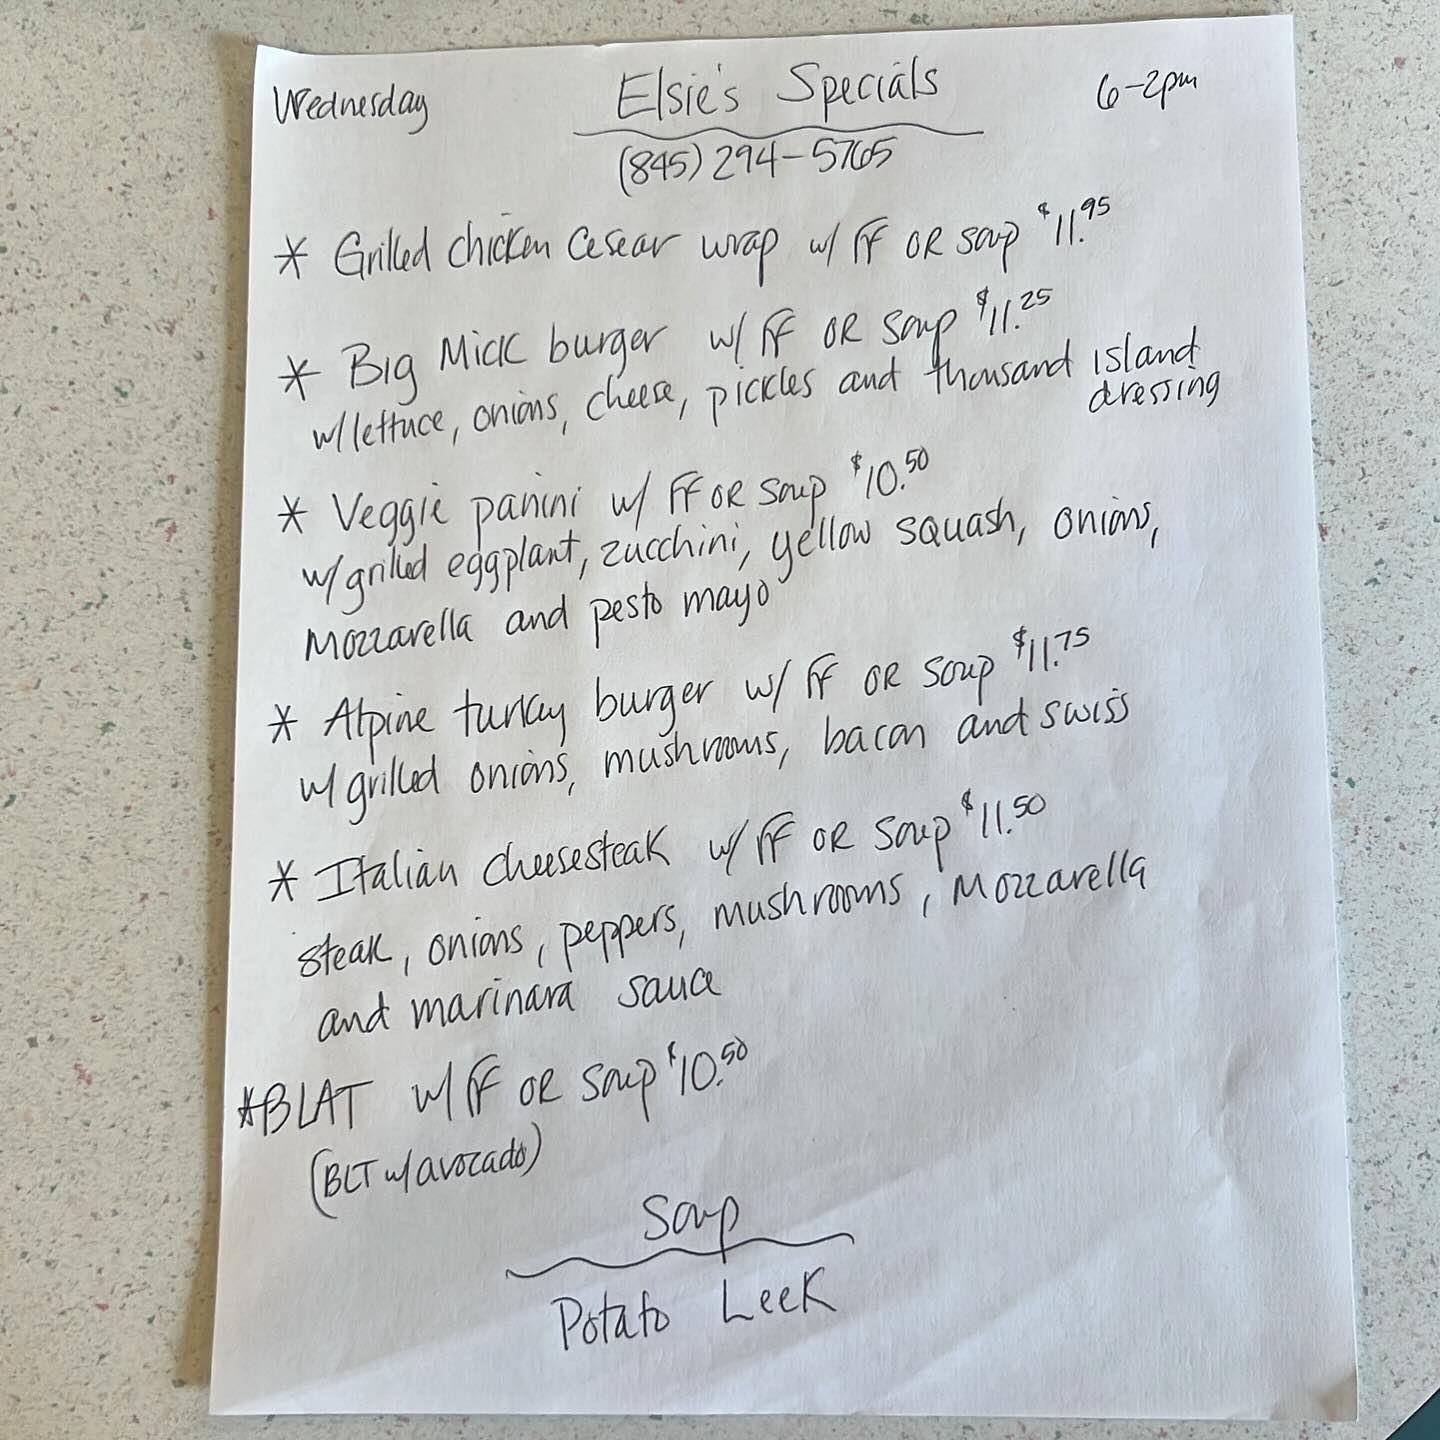 Wednesday Elsie's Specials 6-2pm
(845) 294-5765
* Grilled chicken Cesear wrap w/ FF OR soup $11.95
* Big Mick burger w/ FF OR soup $11.25
w/ lettuce, onions, cheese, pickles and thousand island
dressing
* Veggie panini w/ FF OR soup $10.50
w/ grilled eggplant, zucchini, yellow squash, onions,
Mozzarella and pesto mayo
* Alpine turkey burger w/ FF OR soup $11.75
w/ grilled onions, mushrooms, bacon and swiss
* Italian cheesesteak w/ FF OR soup $11.50
steak, onions, peppers, mushrooms, Mozzarella
and marinara sauce
* BLAT w/ FF OR soup $10.50
(BLT w/ avocado)
Soup
Potato Leek